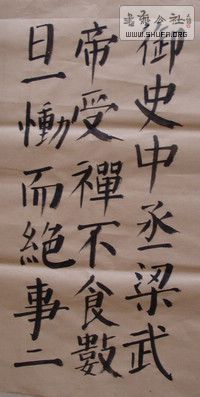 御史中丞梁武
帝受禪不食數
日一慟而絕事二
WWW.SHUFA.ORG